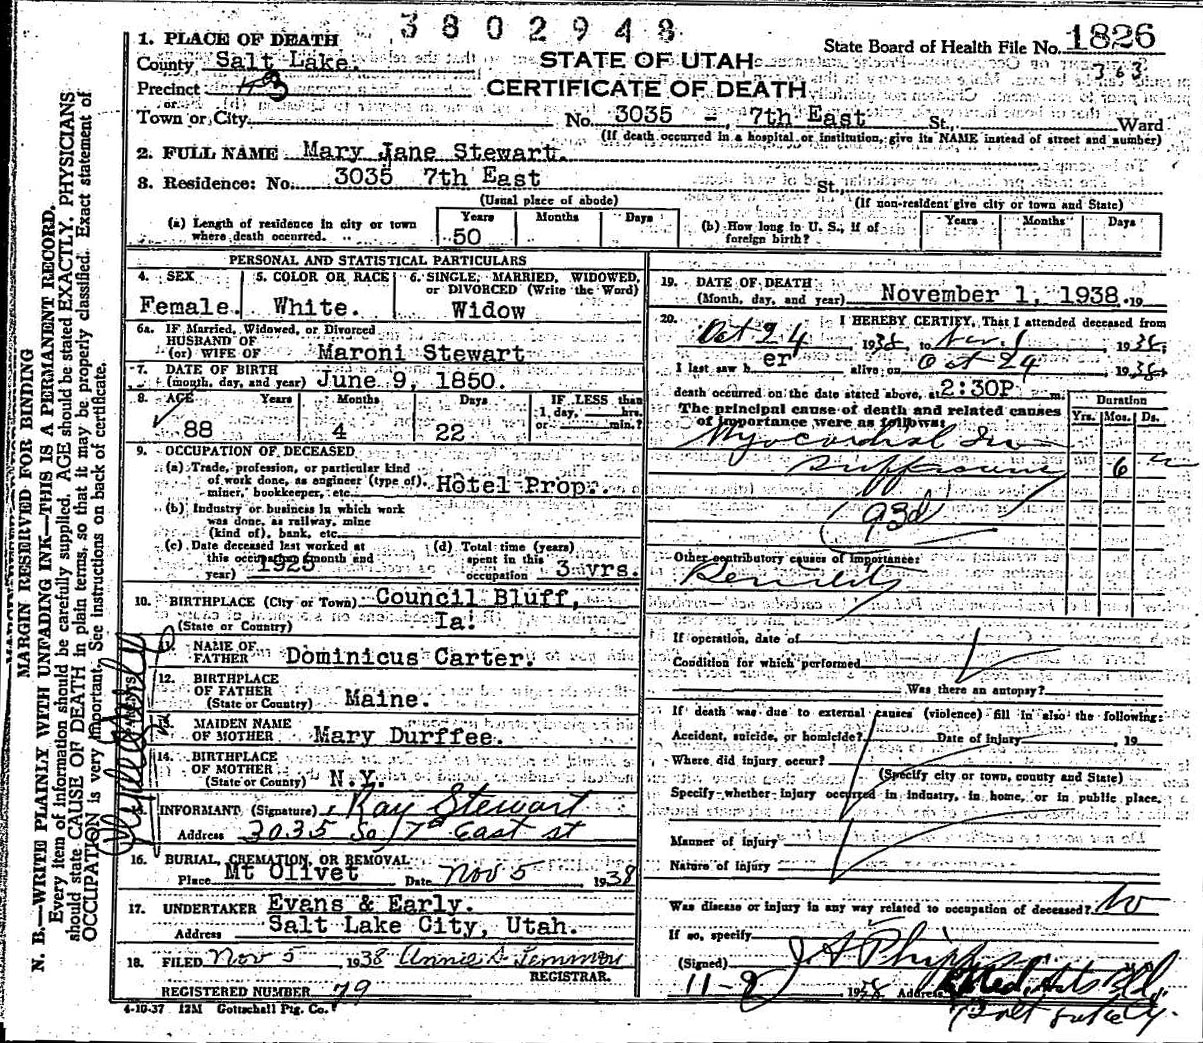 3802948
1. PLACE OF DEATH
State Board of Health File No. 1826
County Salt Lake.
STATE OF UTAH
363
Precinct #3
CERTIFICATE OF DEATH
or
Town or City
No. 3035 - 7th East St., Ward
(If death occurred in a hospital or institution, give its NAME instead of street and number)
2. FULL NAME Mary Jane Stewart.
3. Residence: No. 3035 7th East St.,
(Usual place of abode)
(If non-resident give city or town and State)
(a) Length of residence in city or town where death occurred.
Years Months Days
50
(b) How long in U. S., if of foreign birth?
Years Months Days
PERSONAL AND STATISTICAL PARTICULARS
4. SEX
Female.
5. COLOR OR RACE
White.
6. SINGLE, MARRIED, WIDOWED, or DIVORCED (Write the Word)
Widow
6a. IF Married, Widowed, or Divorced
HUSBAND OF
(or) WIFE OF Maroni Stewart
7. DATE OF BIRTH
(month, day, and year) June 9, 1850.
8. AGE Years Months Days
IF LESS than
1 day, hrs.
or min.?
88 4 22
9. OCCUPATION OF DECEASED
(a) Trade, profession, or particular kind
of work done, as engineer (type of),
miner, bookkeeper, etc. Hotel Prop.
(b) Industry or business in which work
was done, as railway, mine
(kind of), bank, etc.
(c) Date deceased last worked at
this occupation (month and
year) 1925
(d) Total time (years)
spent in this
occupation 3 yrs.
10. BIRTHPLACE (City or Town) Council Bluff,
(State or Country) Ia.
NAME OF
FATHER Dominicus Carter.
12. BIRTHPLACE
OF FATHER
(State or Country) Maine.
13. MAIDEN NAME
OF MOTHER Mary Durffee.
14. BIRTHPLACE
OF MOTHER
(State or County) N.Y.
INFORMANT (Signature) Ray Stewart
Address 3035 So 7th East st
16. BURIAL, CREMATION, OR REMOVAL
Place Mt Olivet Date Nov 5 1938
17. UNDERTAKER Evans & Early.
Address Salt Lake City, Utah.
18. FILED Nov 5 1938
REGISTRAR.
REGISTERED NUMBER 79
4-10-37 12M Gottschall Ptg. Co.
19. DATE OF DEATH
(Month, day, and year) November 1, 1938. 19
20. I HEREBY CERTIFY, That I attended deceased from
Oct 24 1938, to Nov. 1, 1938.
I last saw her alive on Oct 29, 1938.
death occurred on the date stated above, at 2:30P m.
The principal cause of death and related causes
of importance were as follows:
Duration
Yrs. Mos. Ds.
Myocardial In
6
93d
Other contributory causes of importance:
If operation, date of
Condition for which performed
Was there an autopsy?
If death was due to external causes (violence) fill in also the following:
Accident, suicide, or homicide? Date of injury , 19
Where did injury occur?
(Specify city or town, county and State)
Specify whether injury occurred in industry, in home, or in public place.
Manner of injury
Nature of injury
Was disease or injury in any way related to occupation of deceased? No
If so, specify
(Signed) J A Phipps
11-8 1938 Address Med. Arts Bld.
Salt Lake City.
MARGIN RESERVED FOR BINDING
N. B.—WRITE PLAINLY WITH UNFADING INK—THIS IS A PERMANENT RECORD.
Every item of information should be carefully supplied. AGE should be stated EXACTLY. PHYSICIANS
should state CAUSE OF DEATH in plain terms, so that it may be properly classified. Exact statement of
OCCUPATION is very important. See instructions on back of certificate.